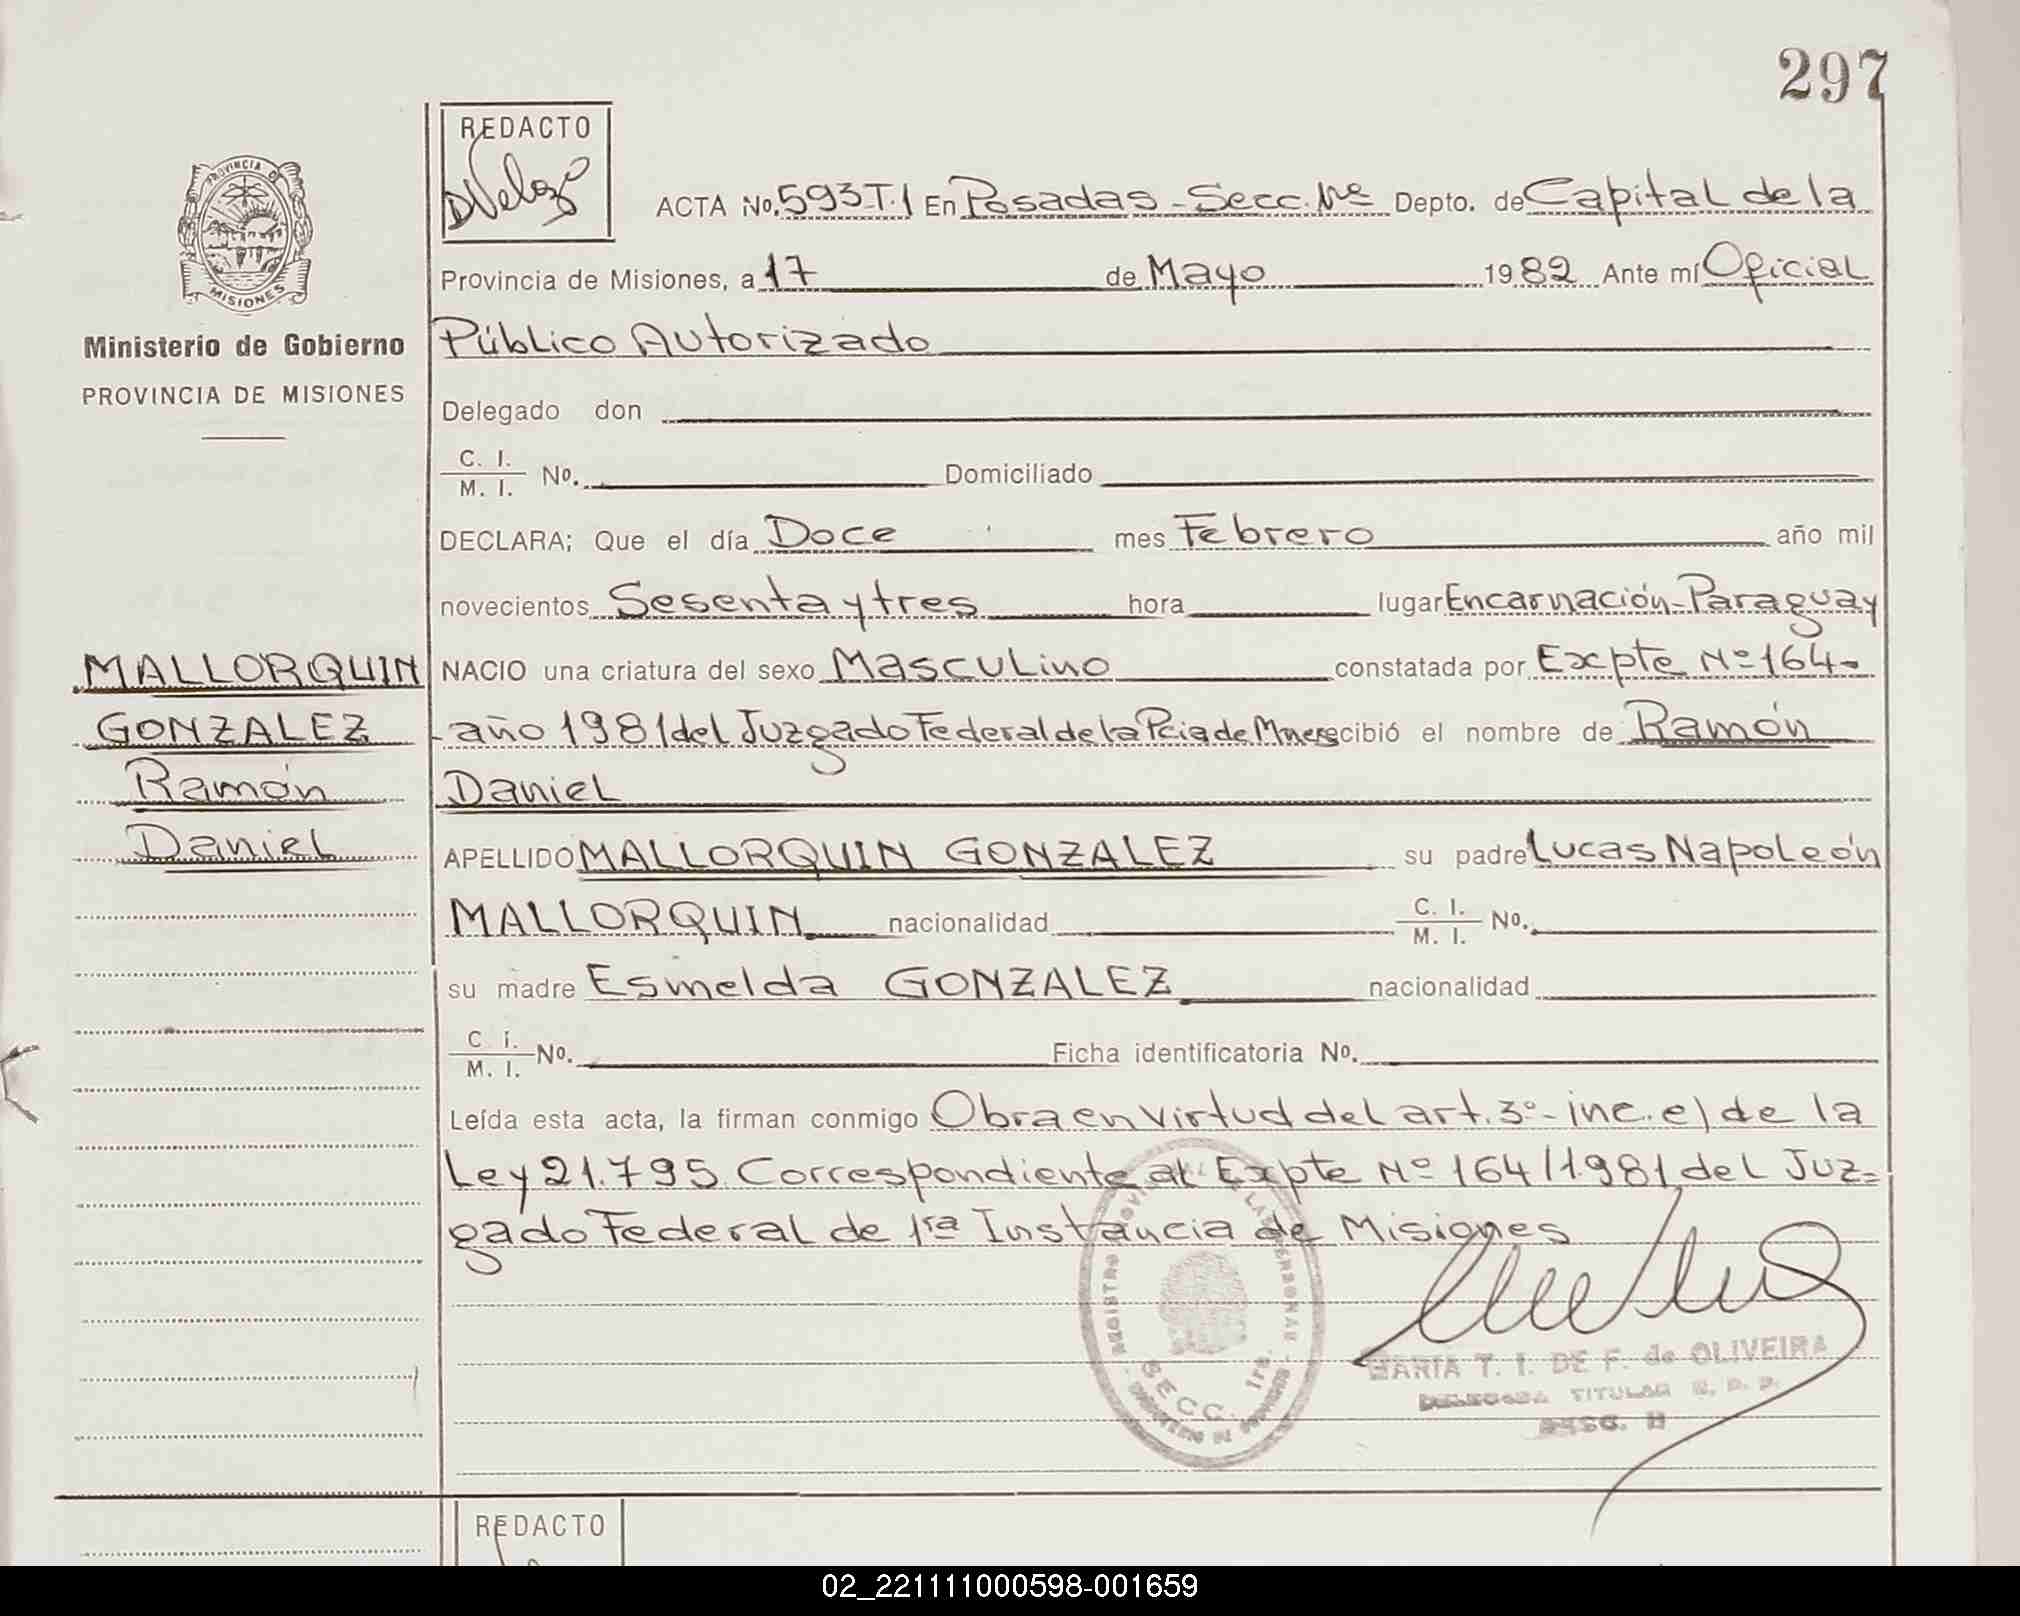 297
REDACTO
DVelozo
PROVINCIA D
MISIONES
Ministerio de Gobierno
PROVINCIA DE MISIONES
ACTA No. 593 T.1 En Posadas - Secc. Nº Depto. de Capital de la
Provincia de Misiones, a 17 de Mayo 1982 Ante mí Oficial
Público Autorizado
Delegado don
C. I.
M. I. No. Domiciliado
DECLARA; Que el día Doce mes Febrero año mil
novecientos Sesenta y tres hora lugar Encarnación-Paraguay
NACIO una criatura del sexo Masculino constatada por Expte Nº 164-
- año 1981 del Juzgado Federal de la Pcia de Mnes recibió el nombre de Ramón
Daniel
MALLORQUIN
GONZALEZ
Ramón
Daniel
APELLIDO MALLORQUIN GONZALEZ su padre Lucas Napoleón
MALLORQUIN nacionalidad C. I.
M. I. No.
su madre Esmelda GONZALEZ nacionalidad
C. I.
M. I. No. Ficha identificatoria No.
Leída esta acta, la firman conmigo Obra en virtud del art. 3º- inc. e) de la
Ley 21.795 Correspondiente al Expte Nº 164/1981 del Juz-
gado Federal de 1ra Instancia de Misiones
REGISTRO PROVINCIAL DE LAS PERSONAS
SECC. 1ra.
MARIA T. I. DE F. de OLIVEIRA
DELEGADA TITULAR R. P. P.
REDACTO
02_221111000598-001659